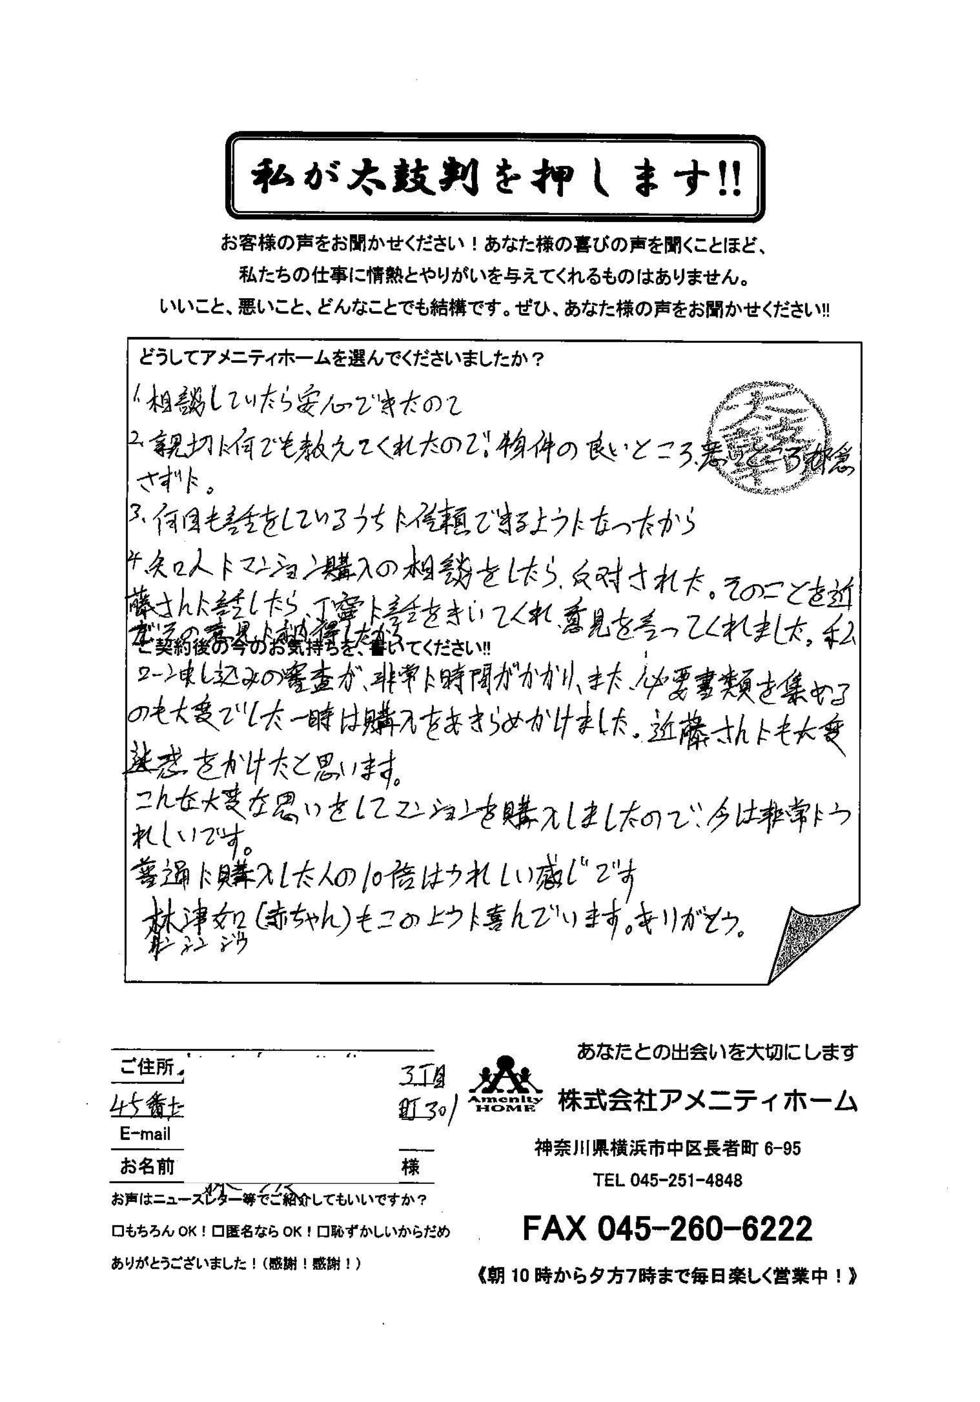 私が太鼓判を押します!!
お客様の声をお聞かせください！あなた様の喜びの声を聞くことほど、
私たちの仕事に情熱とやりがいを与えてくれるものはありません。
いいこと、悪いこと、どんなことでも結構です。ぜひ、あなた様の声をお聞かせください!!
どうしてアメニティホームを選んでくださいましたか？
1、相談していたら安心できたので
2、親切に何でも教えてくれたので。物件の良いところ、悪いところ
さずに。
3、何回も話をしているうちに信頼できるようになったから
4、知人にマンション購入の相談をしたら、反対された。そのことを近
藤さんに話したら、丁寧に話をきいてくれ、意見を言ってくれました。私
がその意見に納得したから
ご契約後の今のお気持ちを、書いてください!!
ローン申し込みの審査が、非常に時間がかかり、また、必要書類を集める
のも大変でした 一時は購入をあきらめかけました。近藤さんにも大変
迷惑をかけたと思います。
こんな大変な思いをしてマンションを購入しましたので、今は非常にう
れしいです。
普通に購入した人の10倍はうれしい感じです
林津如(赤ちゃん)もこのように喜んでいます。ありがとう。
ご住所
3丁目
45番地
町301
E-mail
お名前 様
お声はニュースレター等でご紹介してもいいですか？
□もちろんOK！□匿名ならOK！□恥ずかしいからだめ
ありがとうございました！(感謝！感謝！)
あなたとの出会いを大切にします
Amenity HOME 株式会社アメニティホーム
神奈川県横浜市中区長者町 6-95
TEL 045-251-4848
FAX 045-260-6222
《朝10時から夕方7時まで毎日楽しく営業中！》